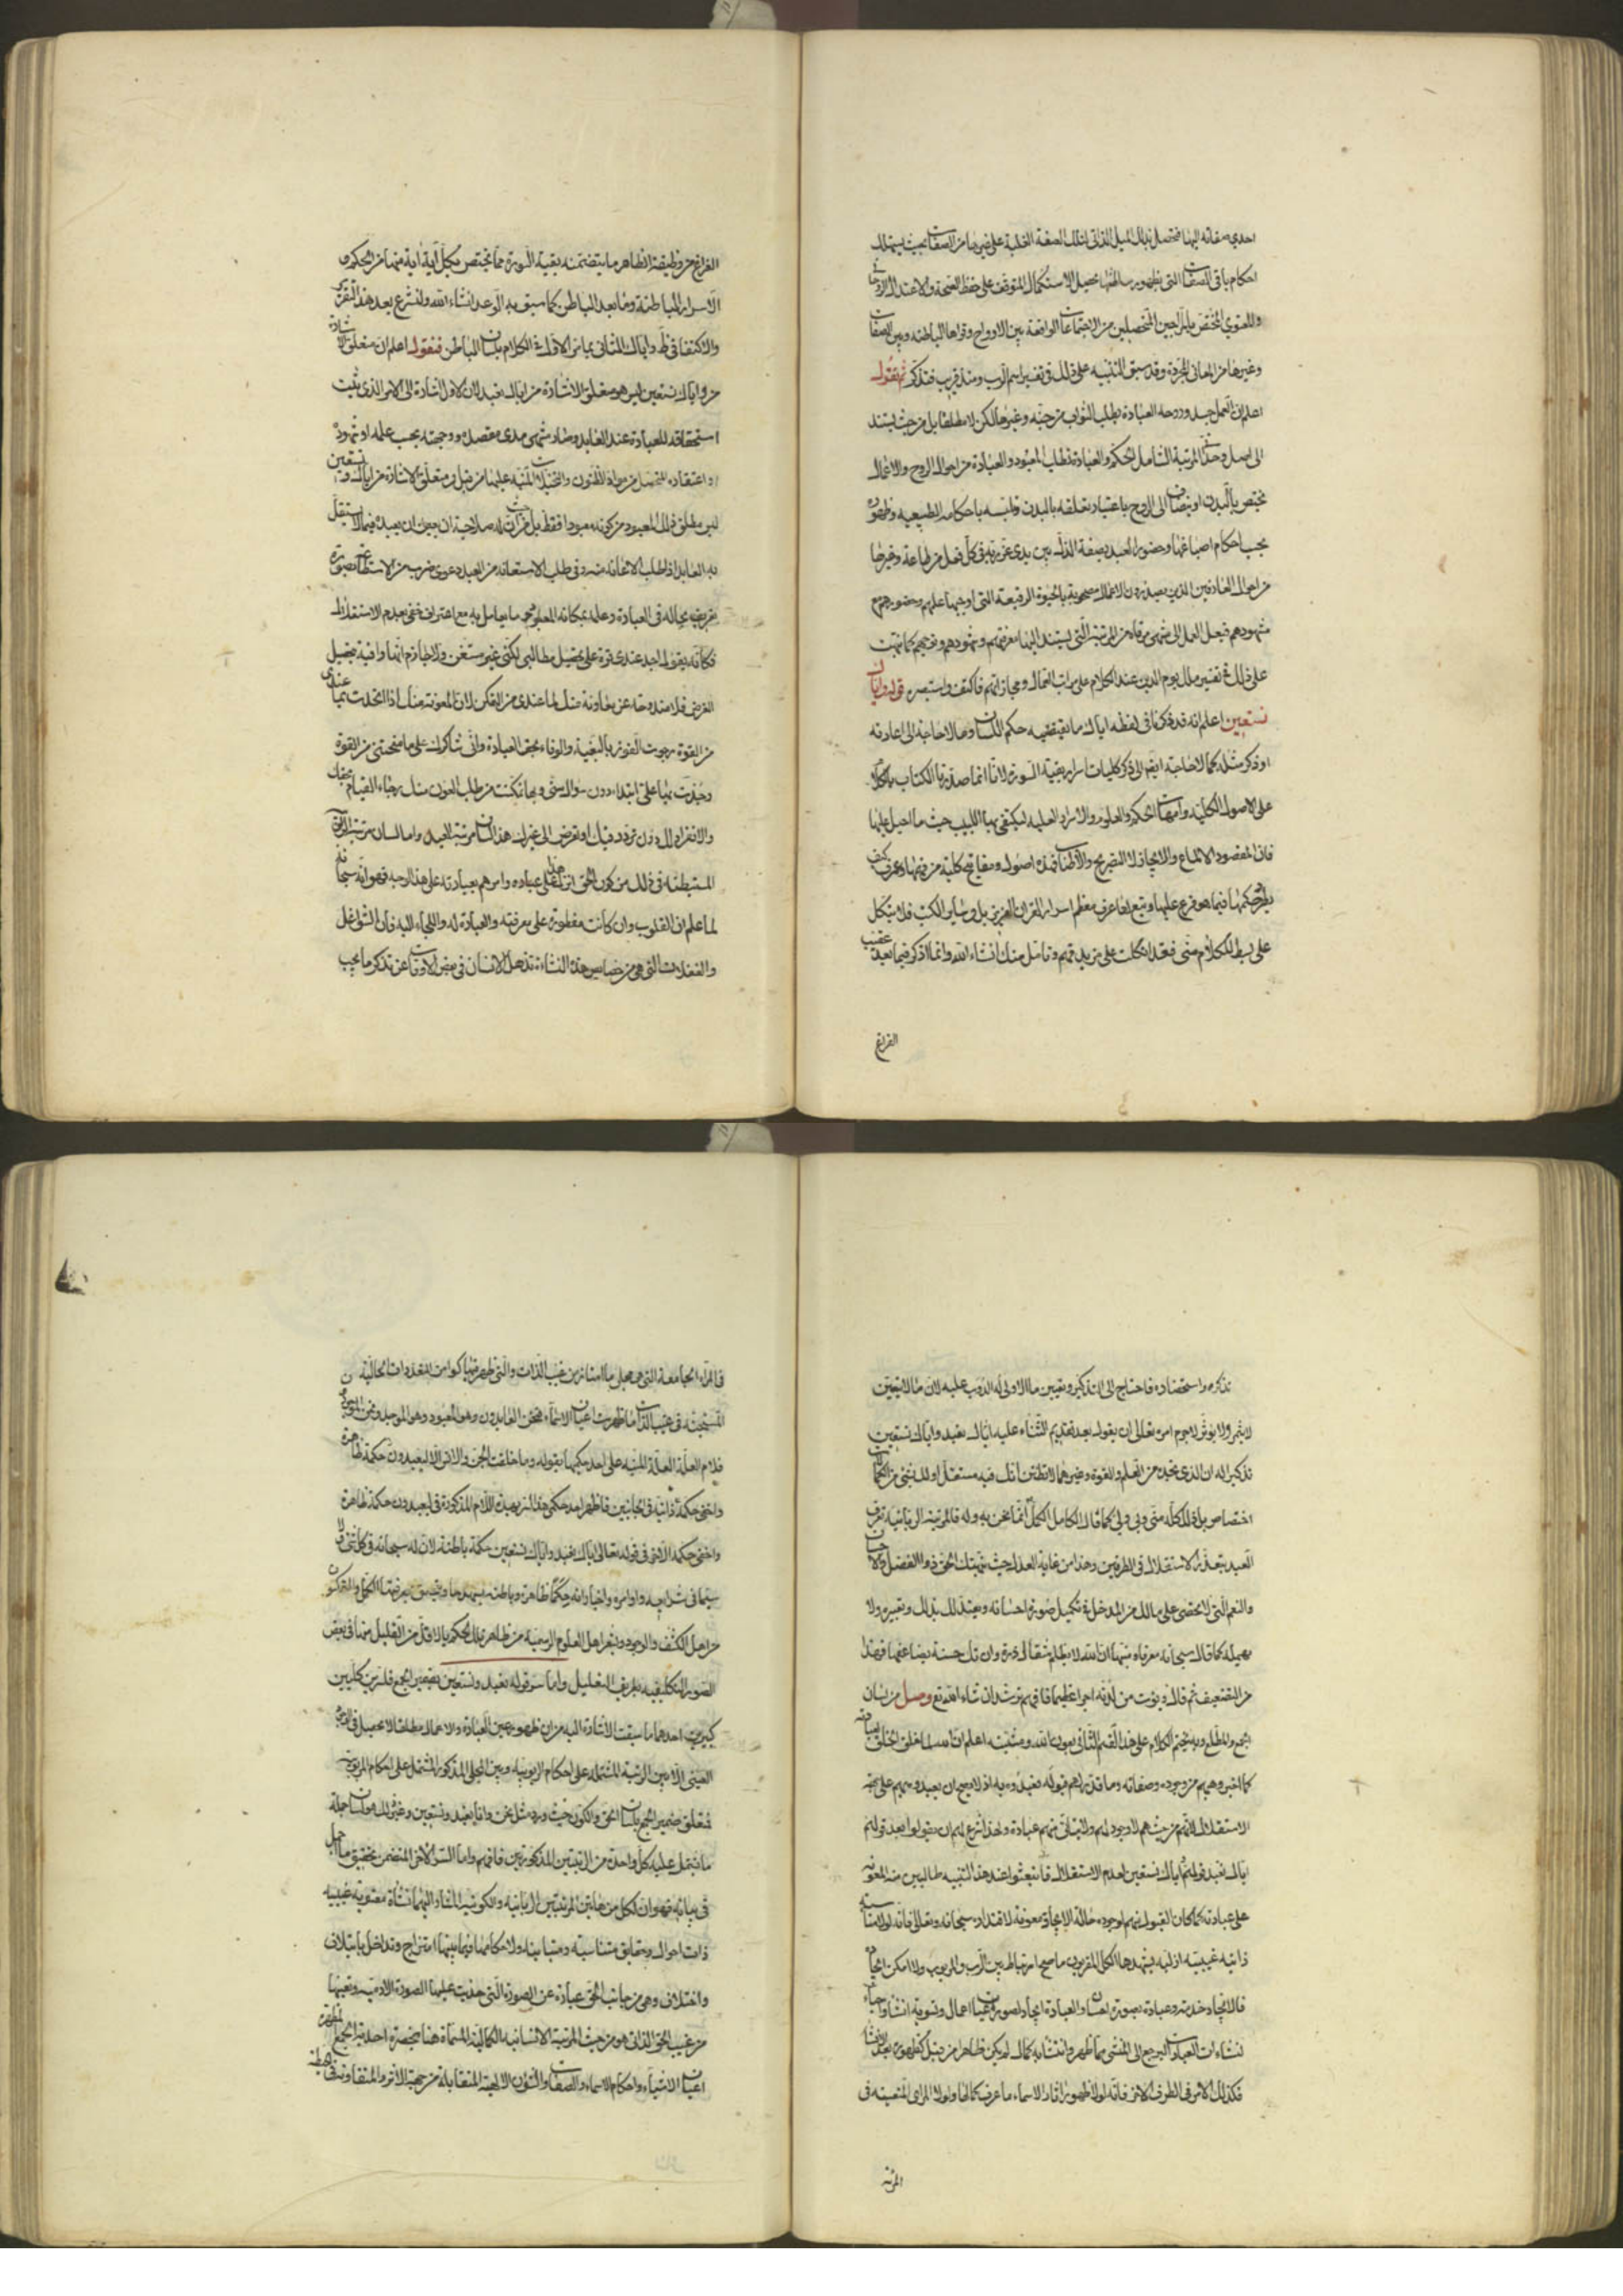 احدى صفاته اليها فتحصل بذلك الميل الذاتي لتلك الصفة الغلبة على غيرها من الصفات بحيث يستهلك
احكام باقي الصفات التي بظهور سلطنتها تحصيل الاستكمال المتوقف على حفظ الصحة والاعتدال الروحاني
والمعنوي المختص بالمزاجين المتحصلين من الاجتماعات الواقعة بين الارواح وقواها الباطنه وبين الصفات
وغيرها من المعاني المجردة وقد سبق التنبيه على ذلك في تفسير اسم الرب ومنذ قريب فتذكر ثم نقول
اعلم ان العمل جسد وروحه العبادة بطلب الثواب من جنة وغيرها لكن لا مطلقا بل من حيث يستند
الى اصل وحداني المرتبة الشامل الحكم والعبادة تطلب المعبود والعبادة من احوال الروح والاعمال
تختص بالبدن او ينضاف الى الروح باعتبار تعلقه بالبدن وتلبسه باحكامه الطبيعيه وظهوره
بحسب احكام اصباغها وحضور العبد بصفة الذلة بين يدي عز ربه في كل فعل من طاعة وغيرها
من احوال العارفين الذين يصدرون الاعمال مصحوبة بالحيوة الرفيعة التي اوجبها علمهم وحضورهم مع
مشهودهم فيعمل العمل الى منتهى مرقاه من المرتبة التي يستند اليها معرفتهم وشهودهم وتوجههم كما نبهت
على ذلك في تفسير ملك يوم الدين عند الكلام على مراتب العمال ومجازاتهم فاكتف واستبصر قوله واياك
نستعين اعلم انه قد ذكرنا في لفظه اياك ما يقتضيه حكم اللسان ومالا حاجة الى اعادته
او ذكر مثله كما لا حاجة ايضا الى ذكر كليات اسرار بقية السورة لانا انما صدرنا الكتاب بالكلام
على الاصول الكلية وامهات الحكم والعلوم والاسرار العلية ليكتفي بها اللبيب حيث ما احيل عليها
فان المقصود الالماع والايجاز لا التصريح والاطناب فهذه اصول ومفاتيح كلية من فهمها وعرف كيف
يطرد حكمها فيما هو فرع عليها وتبع لها عرف معظم اسرار القران العزيز بل وسائر الكتب فلا يتكل
على بسط الكلام مني فقد اتكلت على مزيد فهم وتامل منك انشاء الله وانما اذكر فيما بعد عقيب
الفراغ
الفراغ من وظيفة الظاهر ما يتضمنه بقية السورة مما يختص بكل آية اية منها من الحكم و
الاسرار الباطنة وما بعد الباطن كما سبق به الوعد انشاء الله ولنشرع بعد هذا التقرير
والاكتفا في ظ واياك الثاني بما مر الاول في الكلام بلسان الباطن فنقول اعلم ان متعلق الاشارة
من واياك نستعين ليس هو متعلق الاشارة من اياك نعبد لان الاول اشارة الى الامر الذي ثبت
استحقاقه للعبادة عند العابد وصار منتهى مدى مقصده ووجهته بحسب علمه او شهوده
او اعتقاده المتحصل من مواد الظنون والتخيلات المنبه عليها من قبل ومتعلق الاشارة من اياك ونستعين
ليس مطلق ذلك المعبود من كونه معبودا فقط بل من حيث ان له صلاحية ان يعين ان يعبده فيما لا يستقل
به العابد اذا طلب الاعانة منه وفي طلب الاستعانه من العبد دعوى ضرب من الاستطاعة بصورة
تعريفه بحاله في العبادة وعلمه بمكانة المعبود وما يعامل به مع اعتراف خفي بعدم الاستقلال
فكانه يقول اجد عندي قوة على تحصيل مطالبي لكني غير مستغن ولا جازم انها وافية بتحصيل
الغرض فلا مندوحة عن معاونة منك لما عندي من التمكن لان المعونة منك اذا اتحدت بما عندي
من القوة رجوت الفوز بالبغية والوفاء بحق العبادة واني شاكر لك على ما منحتني من القوة
وجدت بها علي ابتداء دون سوال مني وبها تمكنت من طلب العون منك رجاء القيام بحقك
والانفراد لك دون تردد فيك او تعرض الى غيرك هذا لسان مرتبة العبد واما لسان مرتبة الربوبية
المستبطنة في ذلك من كون الحق انزل هذا على عباده وامرهم بعبادته على هذا الوجه فهو انه سبحانه
لما علم ان القلوب وان كانت مفطورة على معرفته والعبادة له واللجاء اليه فان الشواغل
والغفلات التي هي من خصايص هذه النشاة تذهل الانسان في بعض الاوقات عن تذكر ما يجب
تذكره واستحضاره فاحتاج الى التذكير وتعيين ما الاولى له الدوب عليه لان ما لا يتعين
لا يثمر ولا يؤثر لا جرم امره تعالى ان يقول بعد تقديم الثناء عليه اياك نعبد واياك نستعين
تذكيرا له ان الذي تجده من العلم والقوة وغيرهما لا تظنن انك فيه مستقل او لك شئ من الكمالات
اختصاص بل ذلك كله مني وبي ولي كما قال الكامل المكمل انما نحن به وله فالمرتبة الربانية تعرف
العبد بتعذر الاستقلال في الطرفين وهذا من غاية العدل حيث ينبهك الحق ذو الفضل والاحسان
والنعم التي لا تحصى على مالك من المدخل في تكميل صورة احسانه ويعتد لك بذلك ويعتبره ولا
يهمله كما قال سبحانه معرفا ومنبها ان الله لا يظلم مثقال ذرة وان تك حسنة يضاعفها فهذا
من التضعيف ثم قال ويؤت من لدنه اجرا عظيما فافهم ترشد ان شاء الله تع وصل من لسان
الجمع والمطلع وبه نختم الكلام على هذا القسم الثاني بعون الله ومشيته اعلم ان الله لما خلق الخلق لعبادته
كما اخبر وهبهم من وجوده وصفاته وما قدر لهم قبوله ليعبدوه به اذ لا يصح ان يعبدوه بهم على جهة
الاستقلال لانهم من حيث هم لا وجود لهم ولا يتأتى منهم عبادة ولهذا شرع لهم ان يقولوا بعد قولهم
اياك نعبد قولهم اياك نستعين لعدم الاستقلال فانبعثوا عند هذا التنبيه طالبين منه المعونة
على عبادته كما كان القبول منهم لوجوده حالة الايجاد معونة لاقتداره سبحانه وتعالى فانه لولا مناسبة
ذاتية غيبية ازلية يشهدها الكمل المقربون ما صح ارتباط بين الرب والمربوب ولا امكن ايجاد
فالايجاد خدمة وعبادة بصورة احسان والعبادة ايجاد لصور اعيان اعمال وتسوية انشاء واحياء
لنشاءات العبادات ليرجع الى المنشئ مما ظهر وانتشا به كمال لم يكن ظاهرا من قبل كظهوره بعد الانشاء
فكذلك الامر في الطرف الاخر فانه لولا ظهور اثار الاسماء ما عرف كمالها ولولا المرائي المتعينة في
المرآة
فالمرآة الجامعة التي هي مجلى ما امتاز من غيب الذات والتي ظهر فيها كوامن التعددات الحالية
المستجنة في غيب الذات ما ظهرت اعيان الاسماء فنحن العابدون وهو المعبود وهو الموجد ونحن الموجود
فلام العلة المنبه على احد حكميها بقوله وما خلقت الجن والانس الا ليعبدون حكمة ظاهرة
واخفى حكمة ذاتية في الجانبين فاظهر احد حكمي هذا السر بهذه اللام المذكورة في ليعبدون حكمة ظاهرة
واخفى حكمه الاخر في قوله تعالى اياك نعبد واياك نستعين حكمة باطنة لان له سبحانه في كل شئ لا
سيما في شرايعه واوامره واخباراته حكما ظاهرة وباطنه يشهدها ويتحقق بمعرفتها الكمل والمتمكنون
من اهل الكشف والوجود ويشعر اهل العلوم الرسمية من ظاهر تلك الحكم بالاقل من القليل منها في بعض
الصور التكليفيه بطريق التعليل واما سر قوله نعبد ونستعين بضمير الجمع فلسرين كليين
كبيرين احدهما ما سبقت الاشارة اليه من ان ظهور عين العبادة والاعمال مطلقا لا تحصل في الوجود
العيني الا بين الرتبة المشتملة على احكام الربوبية وبين المجلى المذكور المشتمل على احكام المربوبية
فمتعلق ضمير الجمع بلسان الحق والكون حيث ورد مثل نحن وانا ونعبد ونستعين وغير ذلك هو لسان جملة
ما يشتمل عليه كل واحدة من الرتبتين المذكورتين فافهم واما السر الاخر المتضمن تحقيق ما اجمل
في بيانه فهو ان لكل من هاتين المرتبتين الربانية والكونية المشار اليهما نشاة معنوية غيبية
ذات احوال وحقايق متناسبة ومتباينة ولاحكامها فيما بينها امتزاج وتداخل بايتلاف
واختلاف وهي من جانب الحق عبارة عن الصورة التي حذيت عليها الصورة الادمية وتعينها
من غيب الحق الذاتي هو من حيث المرتبة الانسانية الكمالية المسماة هنا بحضرة احدية الجمع المظهرة
اعيان الاشياء واحكام الاسماء والصفات والشؤن الالهية المتقابلة من جهة الاثر والمتفاوتة في الحيطة